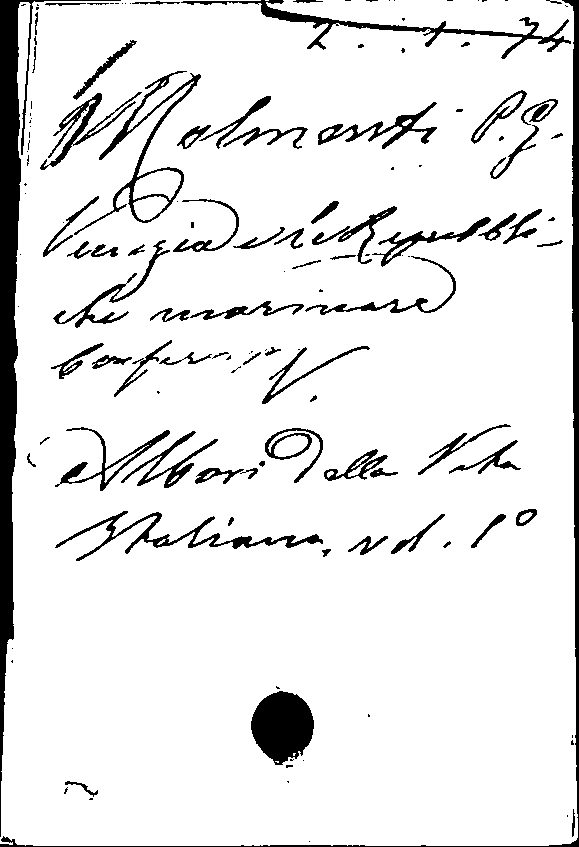 2. . 1. 74
Molmenti P. G.
Venezia e le Repubbli-
che marinare
Confer. V.
Albori della Vita
Italiana, vol. 1º